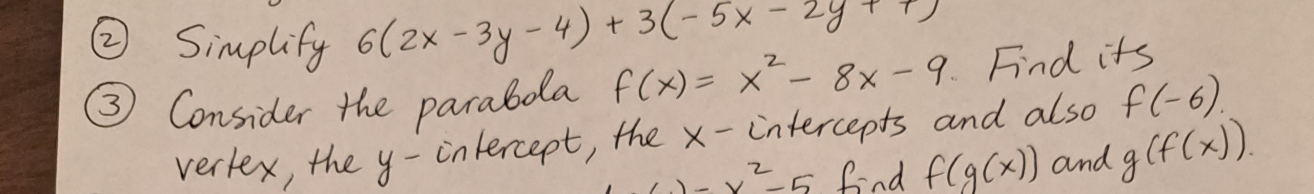 ② Simplify 6(2x - 3y - 4) + 3(-5x - 2y + 7)
③ Consider the parabola f(x) = x² - 8x - 9. Find its
vertex, the y-intercept, the x-intercepts and also f(-6).
= x² - 5 find f(g(x)) and g(f(x)).